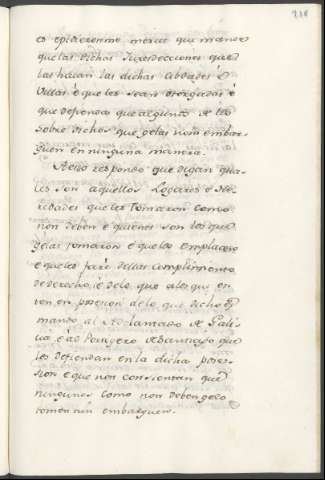 218
es epidieronme merced que mande
que las dichas Jurisdecciones que
las hayan las dichas Cibdades è
Villas è que les sean otorgadas è
que defiendas que alguno
sobre dichos que gelas non embar-
guen en ninguna manera.
A esto respondo que digan qua-
les son aquellos Logares è He-
redades que les tomaron como
non deben è quienes son los que
gelas tomaron è que los emplacen
è que les faré dellas complimiento
de derecho, è de lo que alos que en
ven en posesion de lo que dicho es
mando al Adelantado de Gali-
cia, è à de Santiago que
les defiendan en la dicha pose-
sion è que non consientan que
ningunos como non deben gelo
tomen nin embarguen.